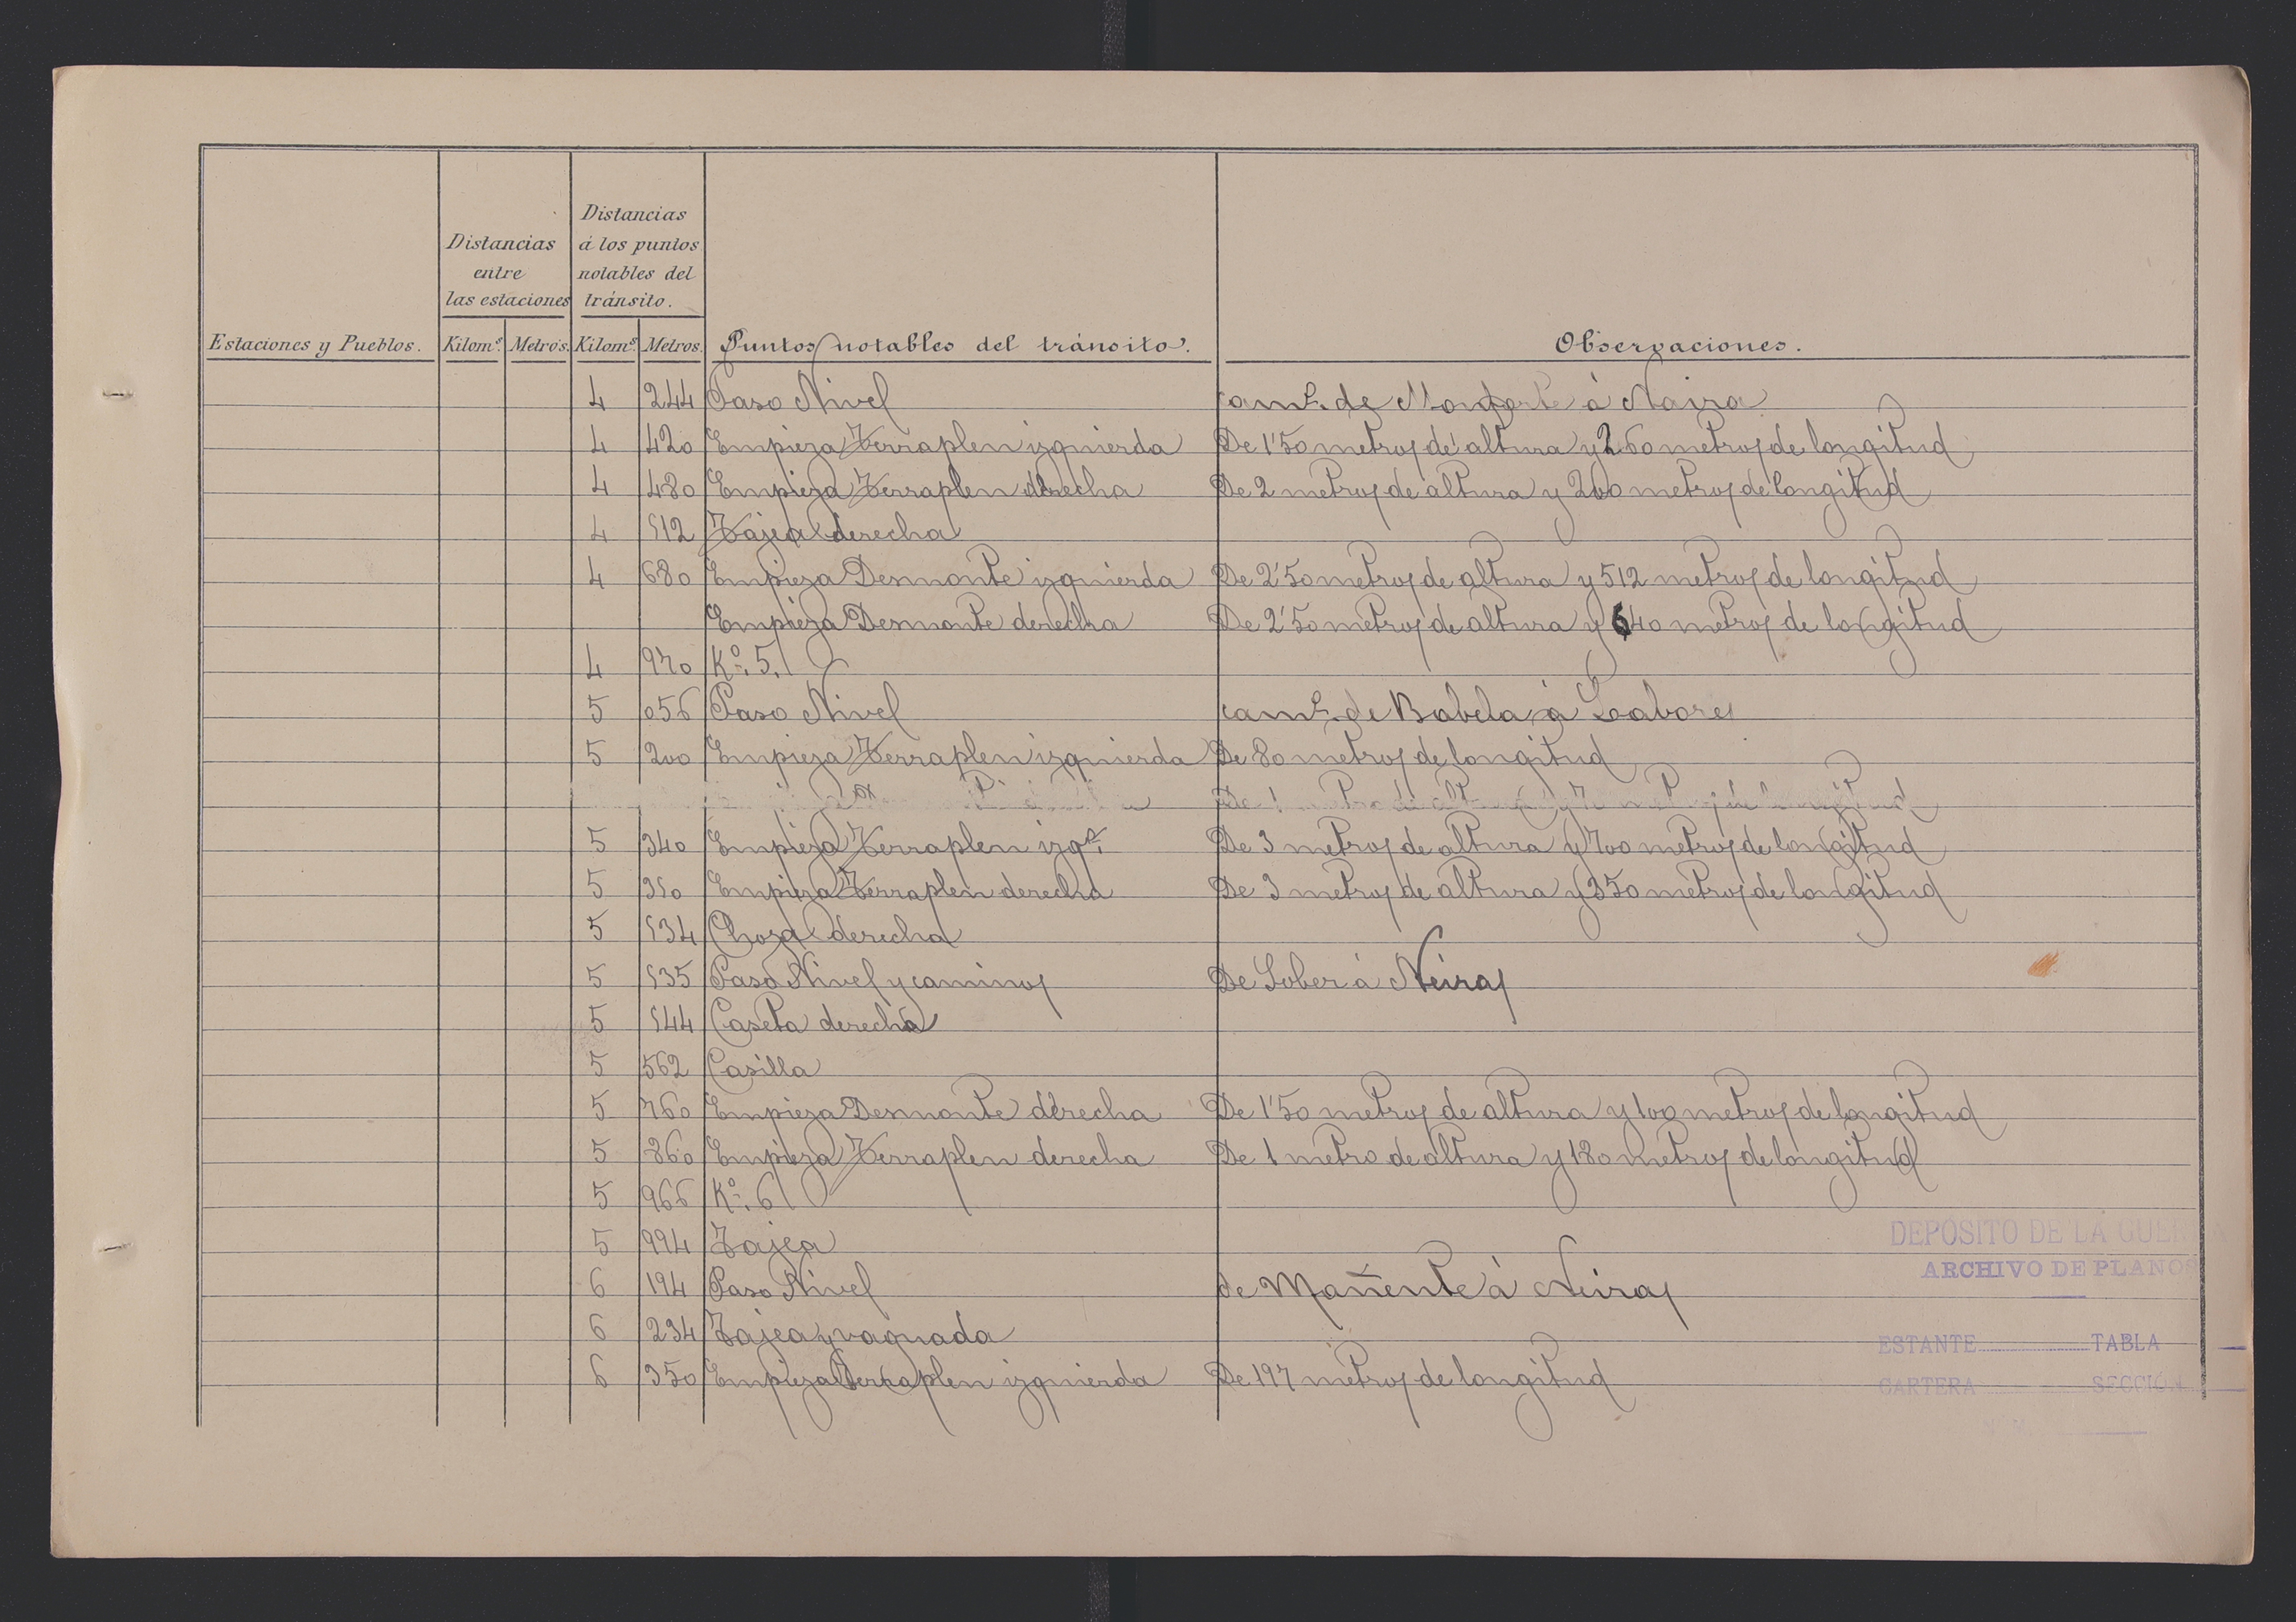 Distancias
Distancias á los puntos
entre notables del
las estaciones tránsito.
Estaciones y Pueblos. Kilomˢ. Metros. Kilomˢ. Metros. Puntos notables del tránsito. Observaciones.
4 244 Paso Nivel camº. de Monforte á Naira
4 420 Empieza Terraplen izquierda De 1'50 metros de altura y 260 metros de longitud
4 480 Empieza Terraplen derecha De 2 metros de altura y 200 metros de longitud
4 512 Tajea derecha
4 680 Empieza Desmonte izquierda De 2'50 metros de altura y 512 metros de longitud
Empieza Desmonte derecha De 2'50 metros de altura y 640 metros de longitud
4 970 Kº. 5.
5 056 Paso Nivel camº. de Bobela á
5 200 Empieza Terraplen izquierda De 80 metros de longitud
De 1 metro de altura y metros de longitud
5 340 Empieza Terraplen izqª. De 3 metros de altura y 700 metros de longitud
5 350 Empieza Terraplen derecha De 3 metros de altura y 350 metros de longitud
5 534 Choza derecha
5 535 Paso Nivel y caminos De Sober á Neiras
5 544 Caseta derecha
5 562 Casilla
5 760 Empieza Desmonte derecha De 1'50 metros de altura y 100 metros de longitud
5 860 Empieza Terraplen derecha De 1 metro de altura y 180 metros de longitud
5 966 Kº. 6
5 994 Tajea
6 194 Paso Nivel de Mañente á Neiras
6 234 Tajea y vaguada
6 350 Empieza Terraplen izquierda De 197 metros de longitud
DEPÓSITO DE LA GUERRA
ARCHIVO DE PLANOS
ESTANTE TABLA
CARTERA SECCIÓN